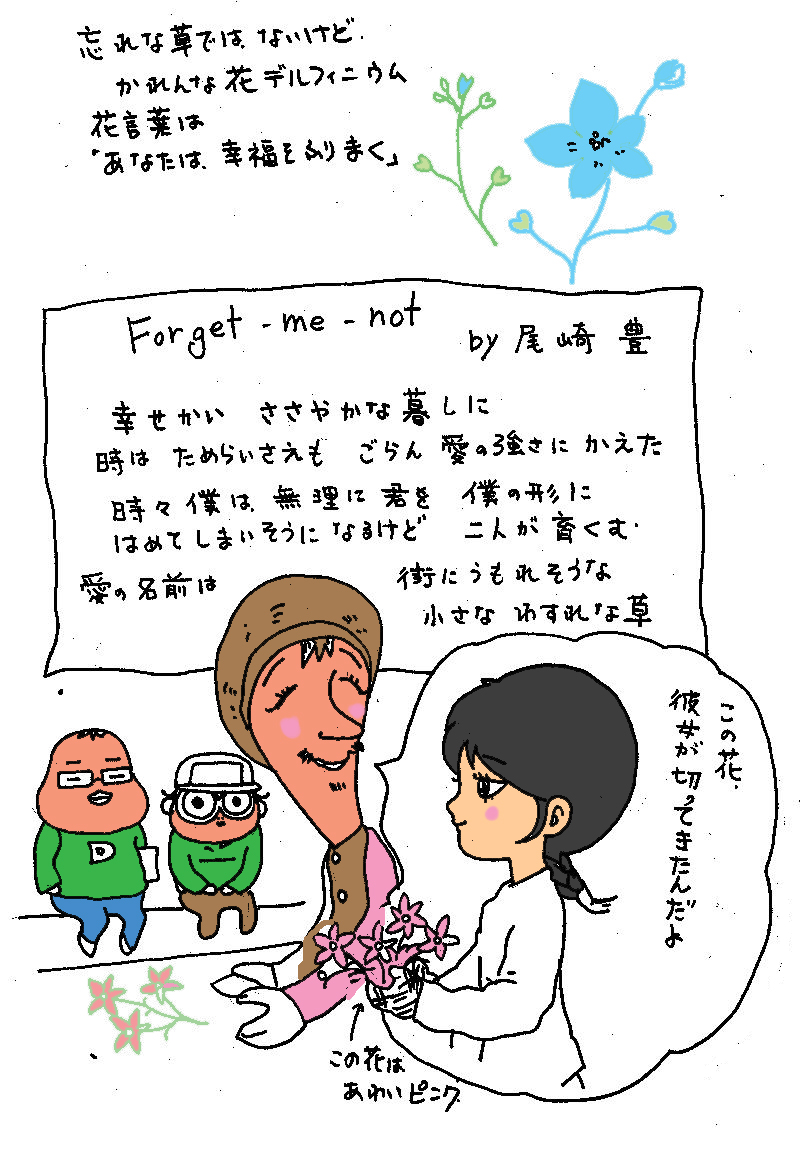 忘れな草ではないけど、
かれんな花デルフィニウム
花言葉は
「あなたは、幸福をふりまく」
Forget-me-not
by 尾崎 豊
幸せかい ささやかな暮しに
時は ためらいさえも ごらん 愛の強さに かえた
時々僕は、無理に君を 僕の形に
はめてしまいそうになるけど 二人が育くむ
愛の名前は 街にうもれそうな
小さな わすれな草
この花、
彼女が切ってきたんだよ
D
この花は
あわいピンク